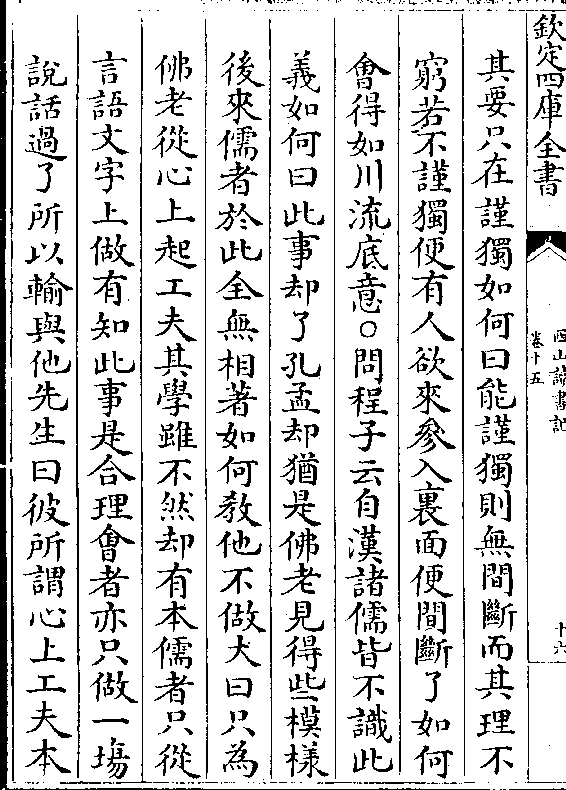 欽定四庫全書
西山讀書記
卷十五
十六
其要只在謹獨如何曰能謹獨則無間斷而其理不
窮若不謹獨便有人欲來參入裏面便間斷了如何
㑹得如川流底意○問程子云自漢諸儒皆不識此
義如何曰此事却了孔孟却猶是佛老見得些模様
後來儒者於此全無相著如何教他不做大曰只為
佛老從心上起工夫其學雖不然却有本儒者只從
言語文字上做有知此事是合理㑹者亦只做一塲
說話過了所以輸與他先生曰彼所謂心上工夫本